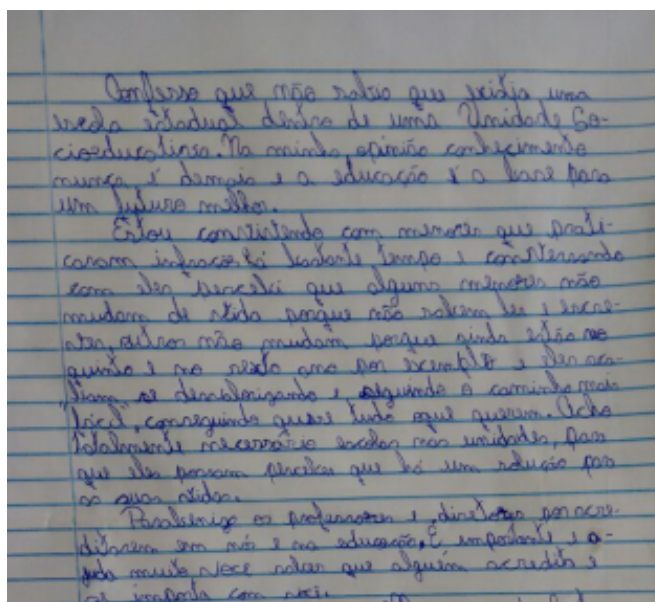 Confesso que não sabia que existia uma
escola estadual dentro de uma Unidade So-
cioeducativa. Na minha opinião conhecimento
nunca é demais e a educação é a base para
um futuro melhor.
Estou convivendo com menores que prati-
caram infrações há bastante tempo e conversando
com eles percebi que alguns menores não
mudam de vida porque não sabem ler e escre-
ver, outros não mudam porque ainda estão no
quinto e no sexto ano por exemplo e eles aca-
bam se desvalorizando e seguindo o caminho mais
"fácil", conseguindo quase tudo que querem. Acho
totalmente necessário escolas nas unidades, para
que eles possam perceber que há um solução para
as suas vidas.
Parabenizo os professores e diretores por acre-
ditarem em nós e na educação. É importante e a-
juda muito você saber que alguém acredita e
se importa com você.